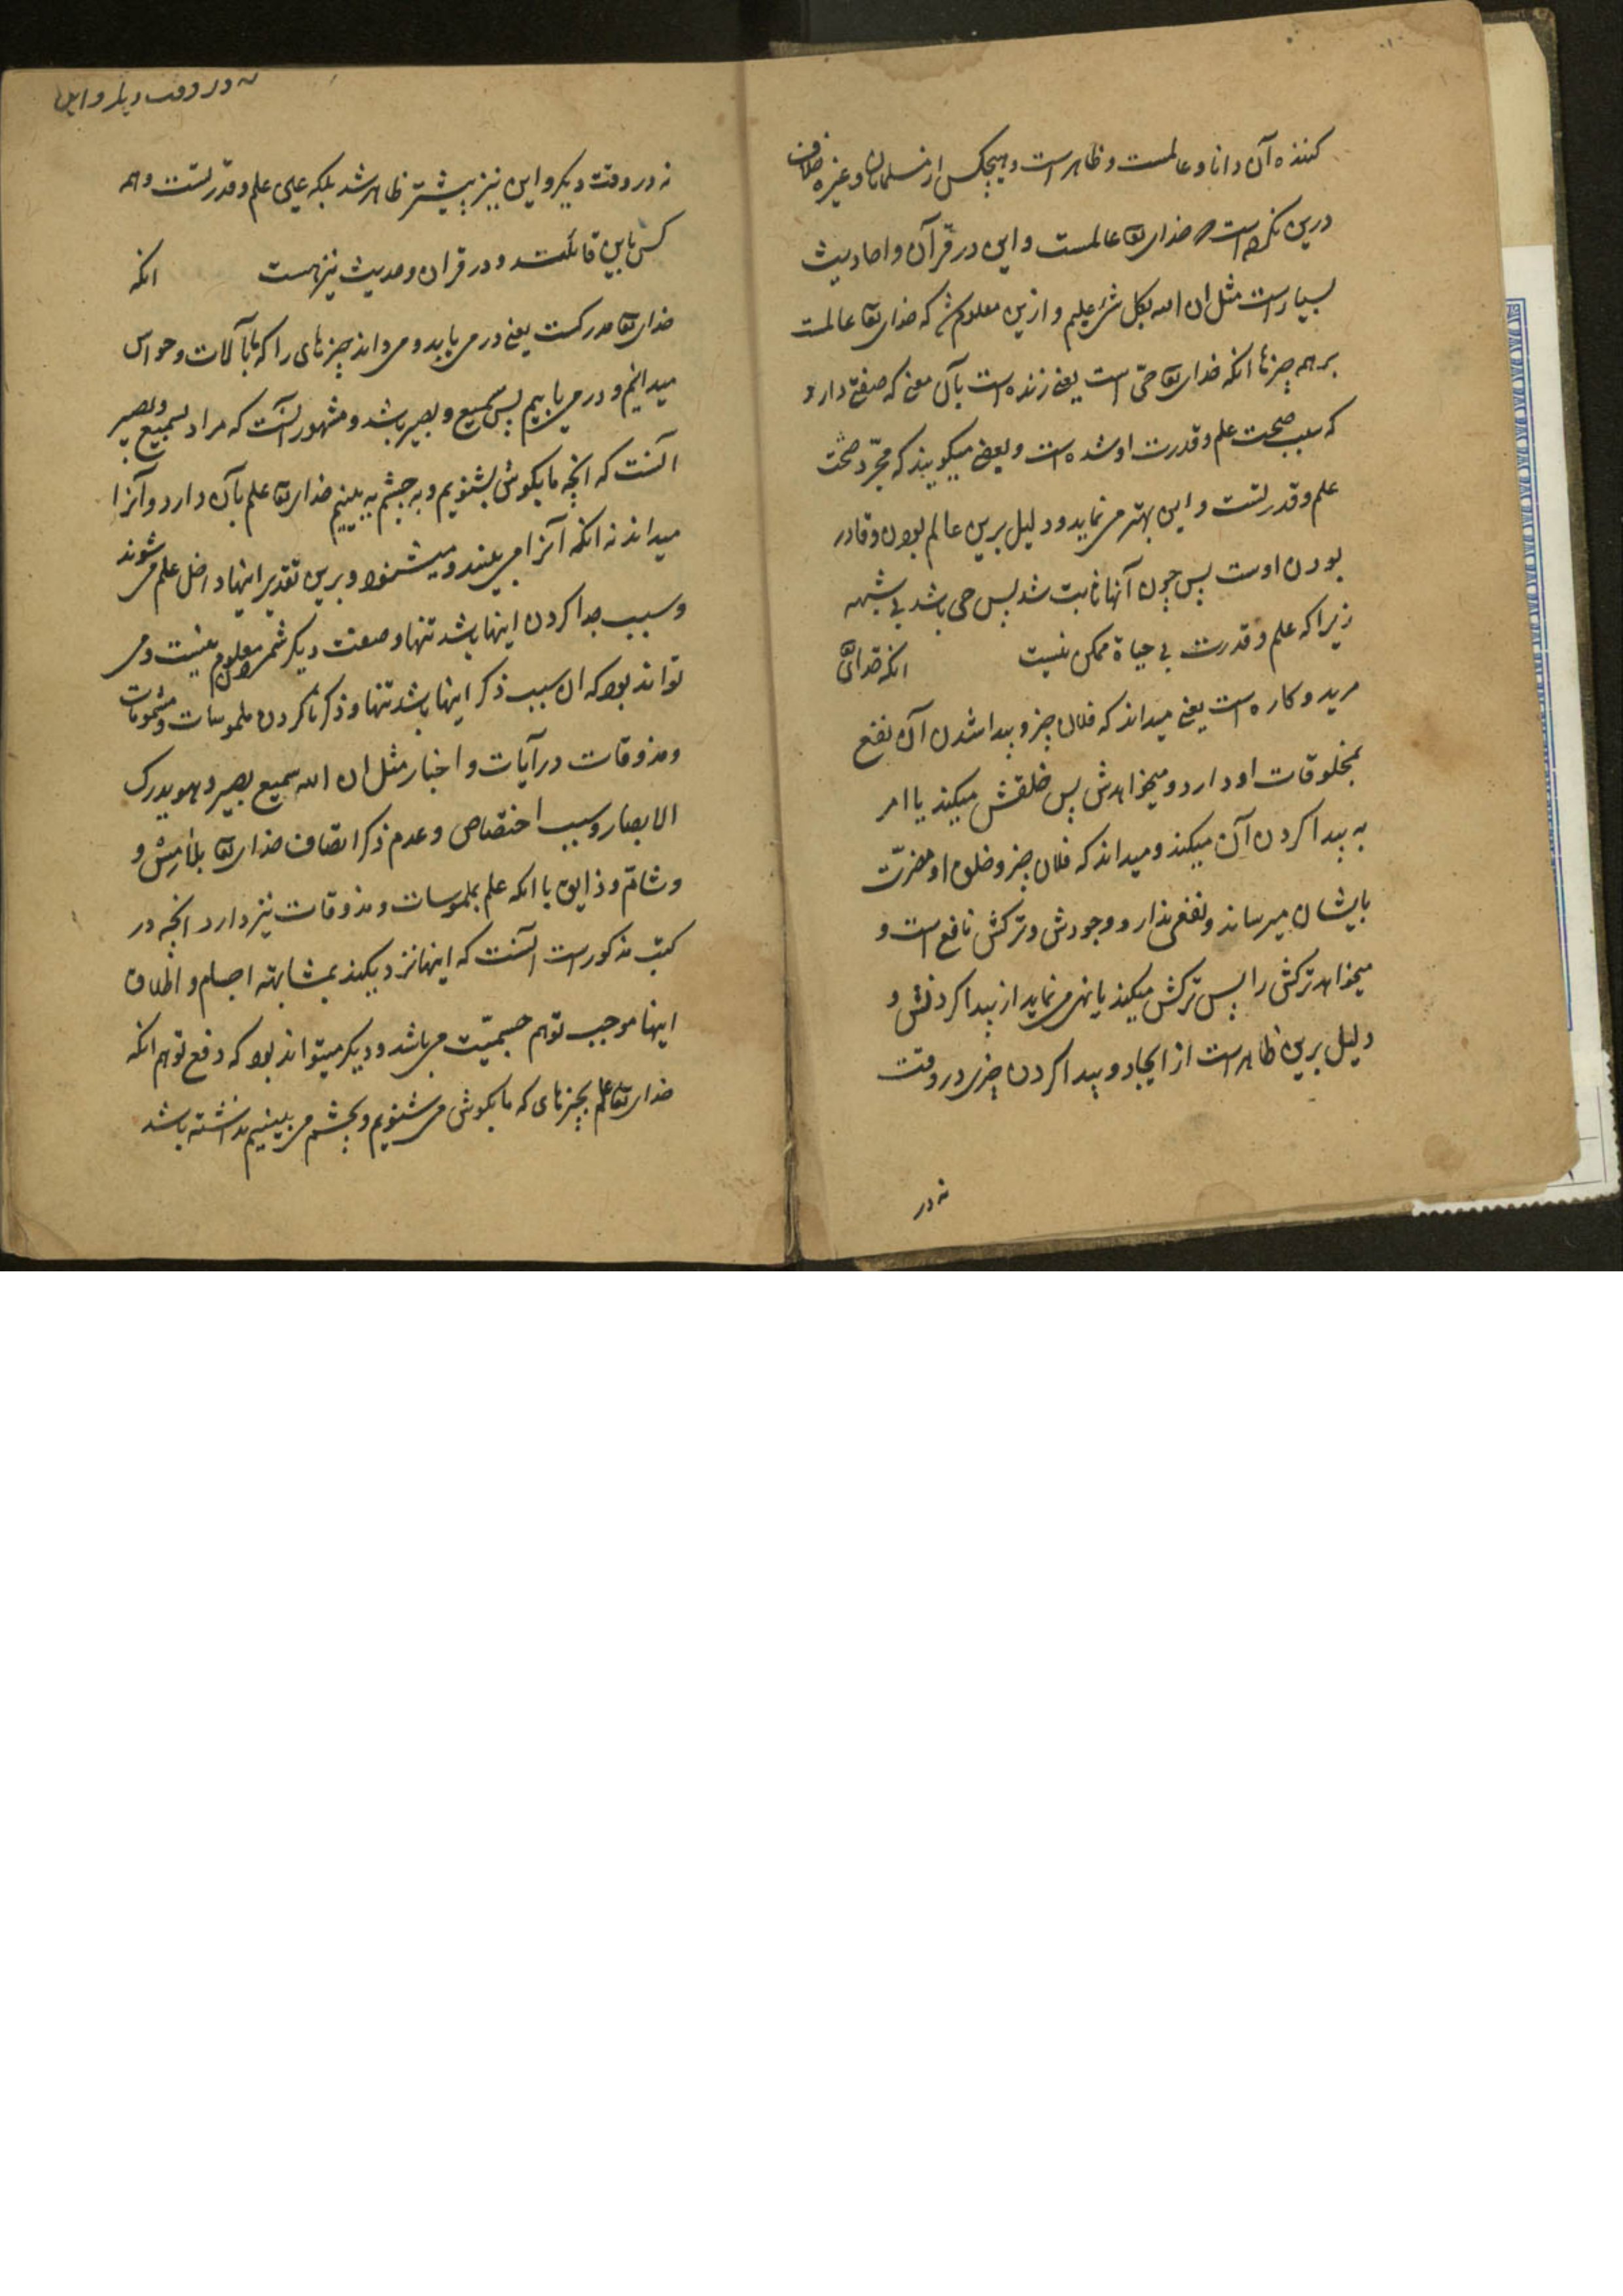 کننده آن دانا و عالمست و ظاهرست و هیچکس از مسلمانان و غیره خلاف
درین نکرده است خدای تعا عالمست و این در قرآن و احادیث
بسیارست مثل ان الله بکل شیء علیم و ازین معلوم شد که خدای تعا عالمست
بر همه چیزها انکه خدای تعا حیّ است یعنی زنده است بآن معنی که صفتی دارد
که سبب صحت علم و قدرت او شده است و بعضی میگویند که مجرّد صحّت
علم و قدرتست و این بهتر می نماید و دلیل برین عالم بودن و قادر
بودن اوست پس چون آنها ثابت شد پس حی باشد بی شبهه
زیرا که علم و قدرت بی حیاة ممکن نیست انکه خدای تعا
مرید و کاره است یعنی میداند که فلان چیز و پیدا شدن آن نفع
بمخلوقات او دارد و میخواهدش پس خلقش میکند یا امر
به پیدا کردن آن میکند و میداند که فلان چیز و خلق او مضرّت
بایشان میرساند و نفعی ندارد وجودش و ترکش نافع است و
میخواهد ترکش را پس ترکش میکند یا نهی می نماید از پیدا کردنش و
دلیل برین ظاهرست از ایجاد و پیدا کردن چیزی در وقت
نه در
نه در وقت دیگر و این
نه در وقت دیگر و این نیز پیشتر ظاهر شد بلکه عین علم و قدرتست و همه
کس باین قائلند و در قران و حدیث نیز هست انکه
خدای تعا مدرکست یعنی در می یابد و می داند چیزهای را که ما بآلات و حواس
میدانیم و در می یابیم پس سمیع و بصیر باشد و مشهور آنست که مراد بسمیع و بصیر
آنست که انچه ما بگوش بشنویم و به چشم به بینیم خدای تعا علم بآن دارد و آنرا
میداند نه انکه آنرا می بیند و میشنود و برین تقدیر اینها داخل علم می شوند
و سبب جدا کردن اینها باشد تنها و صفت دیگر شمردن معلوم نیست و می
تواند بود که ان سبب ذکر اینها باشد تنها و ذکر ناکردن ملموسات و مشمومات
و مذوقات در آیات و اخبار مثل ان الله سمیع بصیر و هو یدرک
الابصار و سبب اختصاص و عدم ذکر اتصاف خدای تعا بلامس و
و شامّ و ذایق با انکه علم بملموسات و مذوقات نیز دارد انچه در
کتب مذکورست آنست که اینها نزدیکند بمشابهته اجسام و اطلاق
اینها موجب توهم جسمیّت می باشد و دیگر میتواند بود که دفع توهم انکه
خدای تعا علم بچیزهای که ما بگوش می شنویم و بچشم می بینیم نداشته باشد